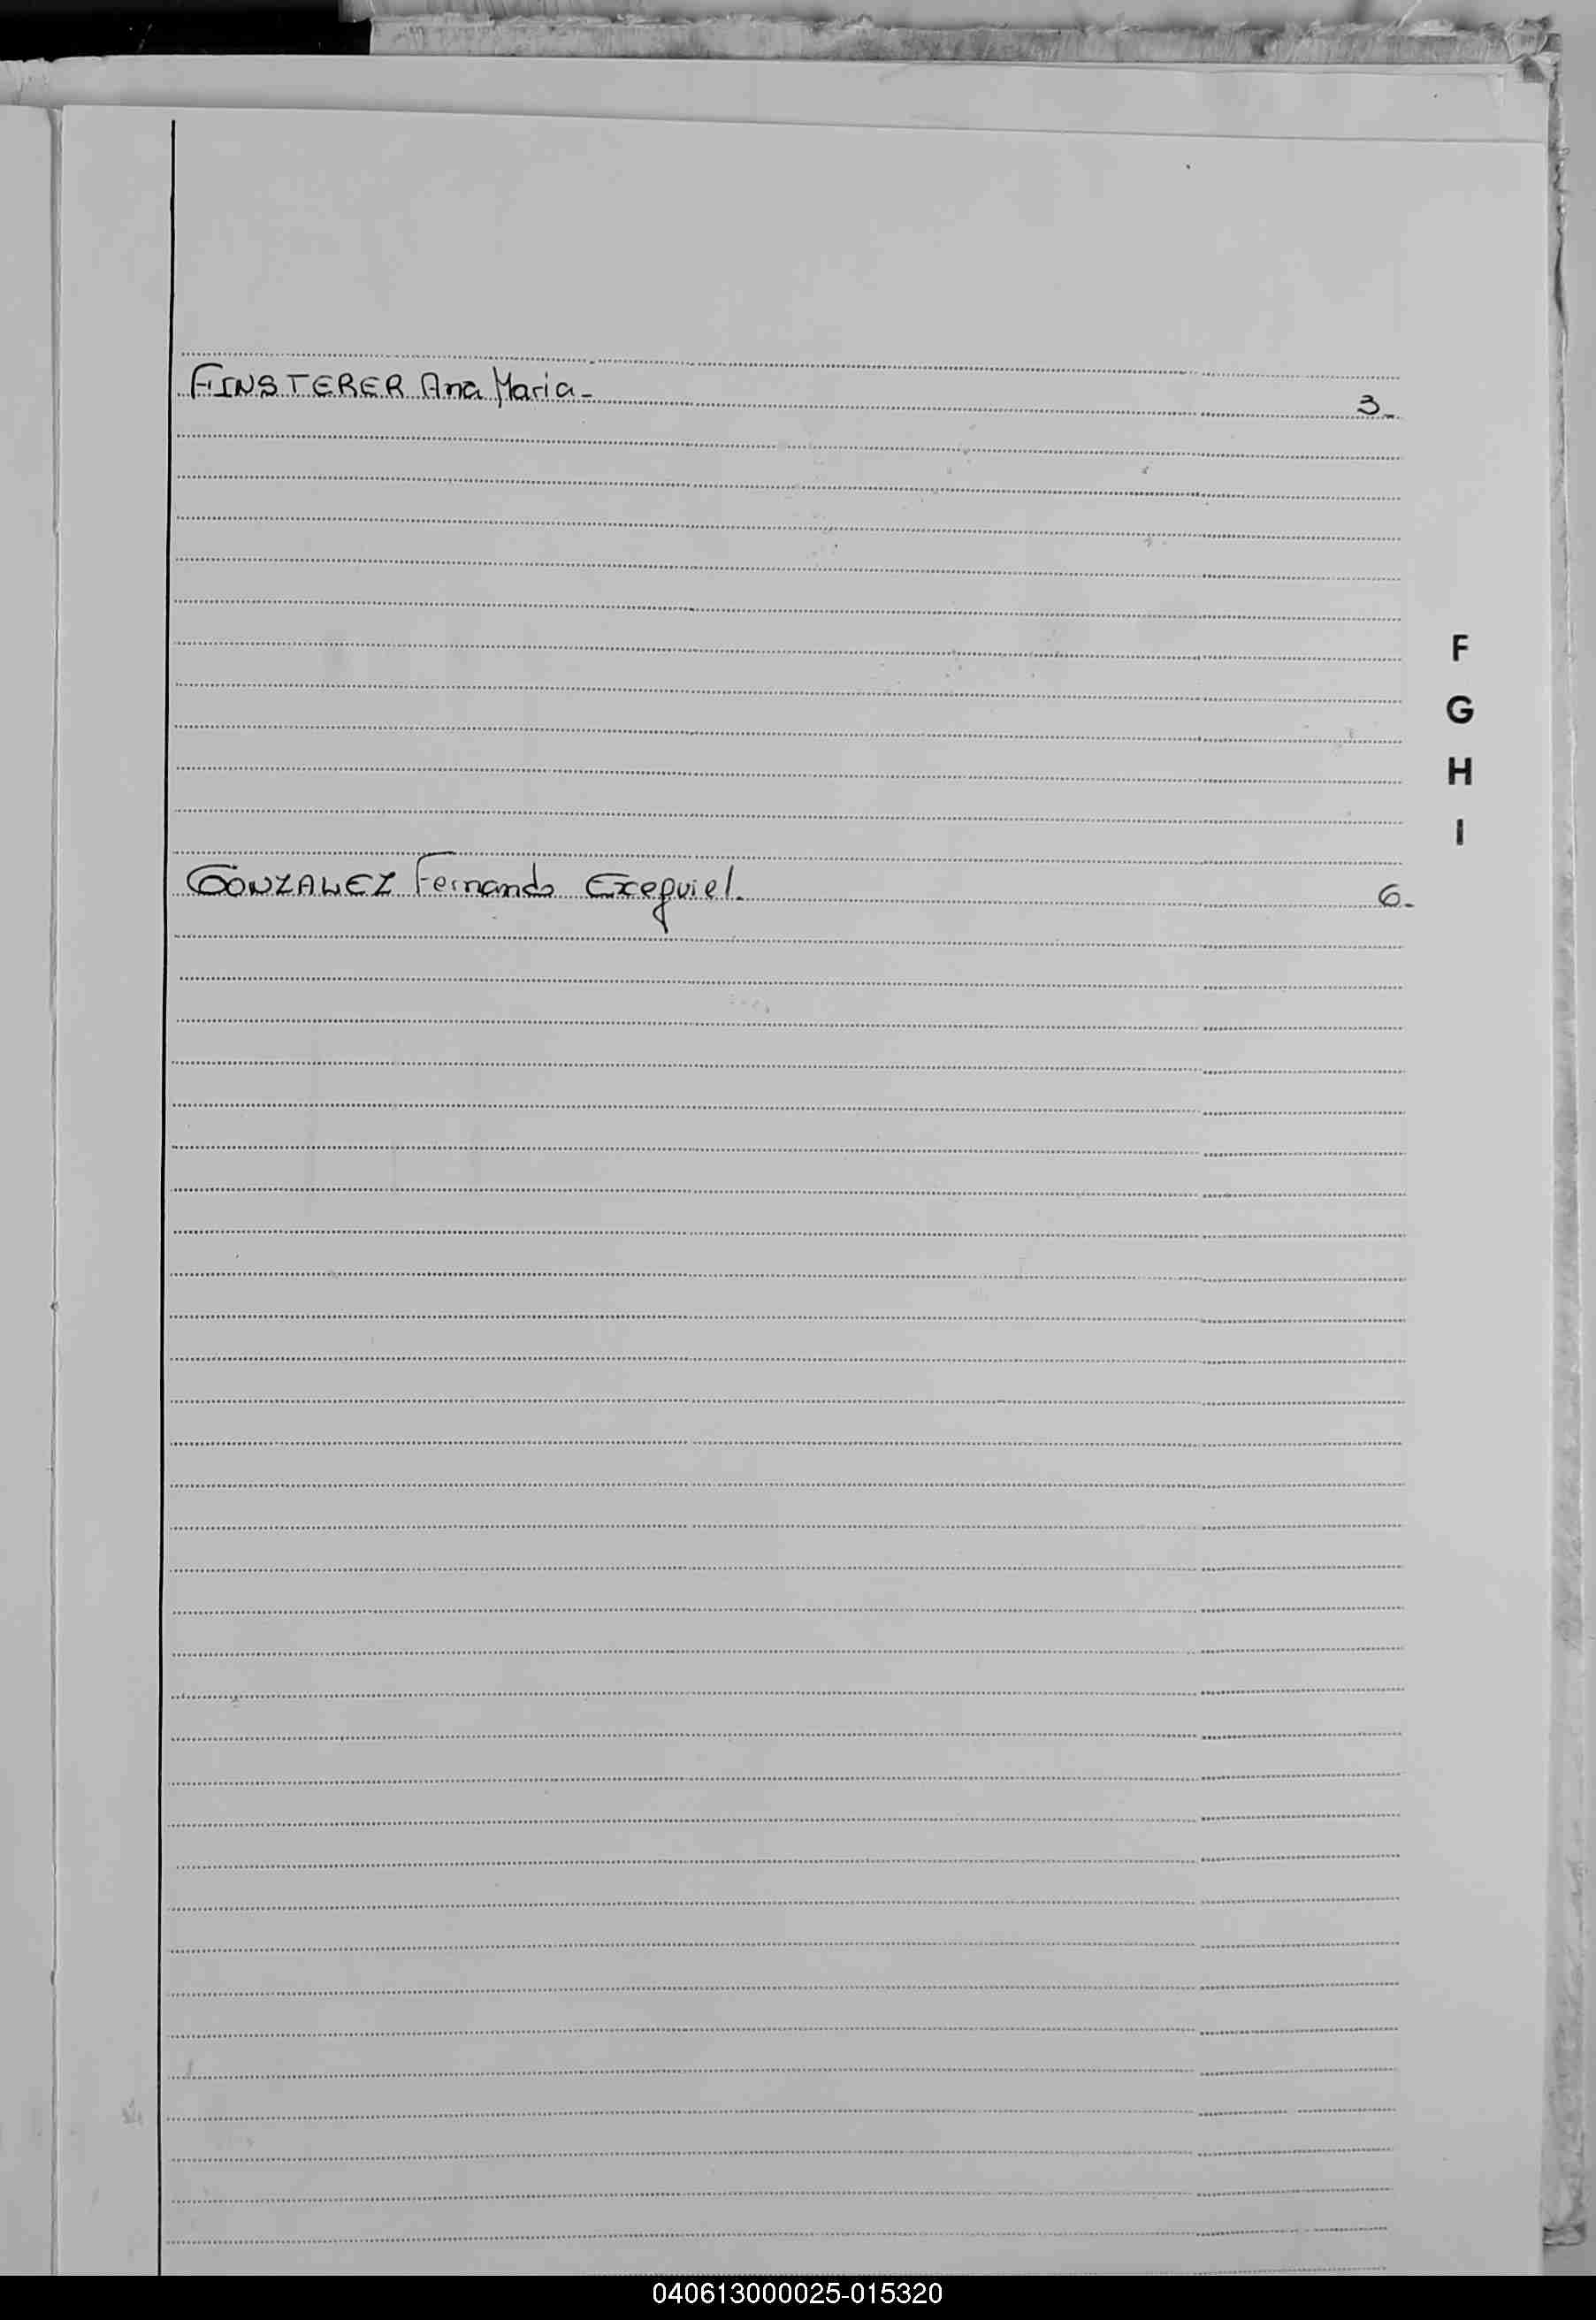 FINSTERER Ana Maria- 3-
F
G
H
I
GONZALEZ Fernando Exequiel. 6-
040613000025-015320